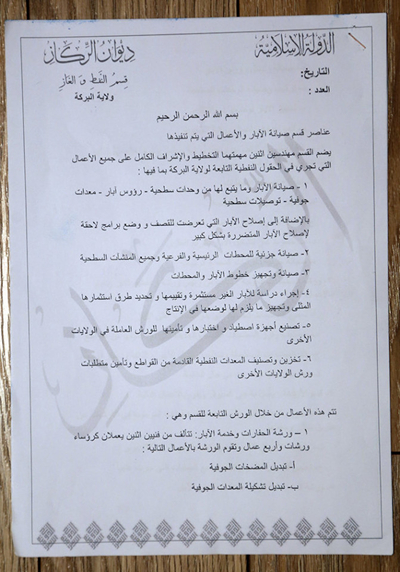 الدولة الإسلامية
ديوان الركاز
قسم النفط و الغاز
ولاية البركة
التاريخ:
العدد :
بسم الله الرحمن الرحيم
عناصر قسم صيانة الأبار والأعمال التي يتم تنفيذها
يضم القسم مهندسين اثنين مهمتهما التخطيط والإشراف الكامل على جميع الأعمال
التي تجري في الحقول النفطية التابعة لولاية البركة بما فيها :
١ – صيانة الأبار وما يتبع لها من وحدات سطحية - رؤوس أبار - معدات
جوفية - توصيلات سطحية
بالإضافة إلى إصلاح الأبار التي تعرضت للقصف و وضع برامج لاحقة
لإصلاح الأبار المتضررة بشكل كبير
٢- صيانة جزئية للمحطات الرئيسية والفرعية وجميع المنشآت السطحية
٣- صيانة وتجهيز خطوط الأبار والمحطات
٤- إجراء دراسة للأبار الغير مستثمرة وتقييمها و تحديد طرق استثمارها
المثلى وتجهيز ما يلزم لها لوضعها في الإنتاج
٥- تصنيع أجهزة اصطياد و اختبارها و تأمينها للورش العاملة في الولايات
الأخرى
٦- تخزين وتصنيف المعدات النفطية القادمة من القواطع وتأمين متطلبات
ورش الولايات الأخرى
تتم هذه الأعمال من خلال الورش التابعة للقسم وهي :
١ – ورشة الحفارات وخدمة الأبار: تتألف من فنيين اثنين يعملان كرؤساء
ورشات وأربع عمال وتقوم الورشة بالأعمال التالية :
أ- تبديل المضخات الجوفية
ب- تبديل تشكيلة المعدات الجوفية